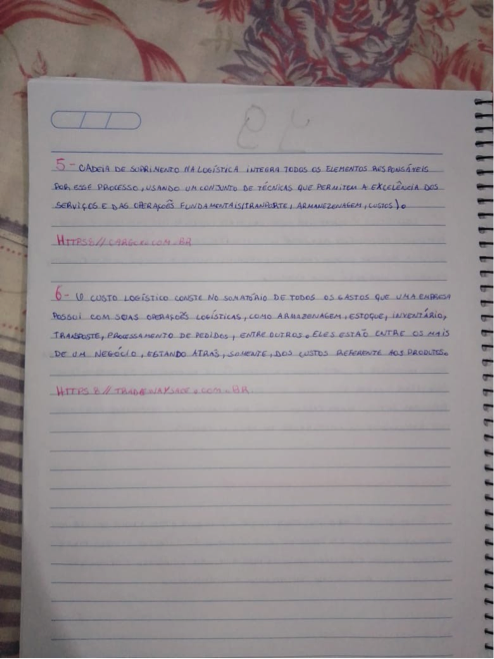 5- CADEIA DE SUPRIMENTO NA LOGÍSTICA INTEGRA TODOS OS ELEMENTOS RESPONSÁVEIS
POR ESSE PROCESSO, USANDO UM CONJUNTO DE TÉCNICAS QUE PERMITEM A EXCELÊNCIA DOS
SERVIÇOS E DAS OPERAÇÕES FUNDAMENTAIS(TRANPORTE, ARMANEZENAGEM, CUSTOS).
HTTPS://
6- O CUSTO LOGÍSTICO CONSTE NO SOMATÓRIO DE TODOS OS GASTOS QUE UMA EMPRESA
POSSUI COM SUAS OPERAÇÕES LOGÍSTICAS, COMO ARMAZENAGEM, ESTOQUE, INVENTÁRIO,
TRANSPOSTE, PROCESSAMENTO DE PEDIDOS, ENTRE OUTROS. ELES ESTÃO ENTRE OS MAIS
DE UM NEGÓCIO, ESTANDO ATRÁS, SOMENTE, DOS CUSTOS REFERENTE AOS PRODUTOS.
HTTPS://